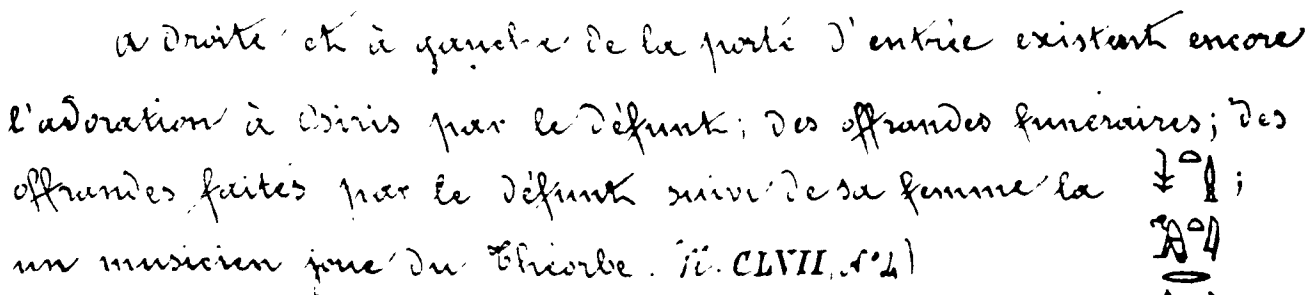 a droite et à gauche de la porte d'entrée existent encore
l'adoration à Osiris par le défunt; des offrandes funéraires; des
offrandes faites par le défunt suivi de sa femme la ;
un musicien joue du Théorbe. CLVII, N°4)